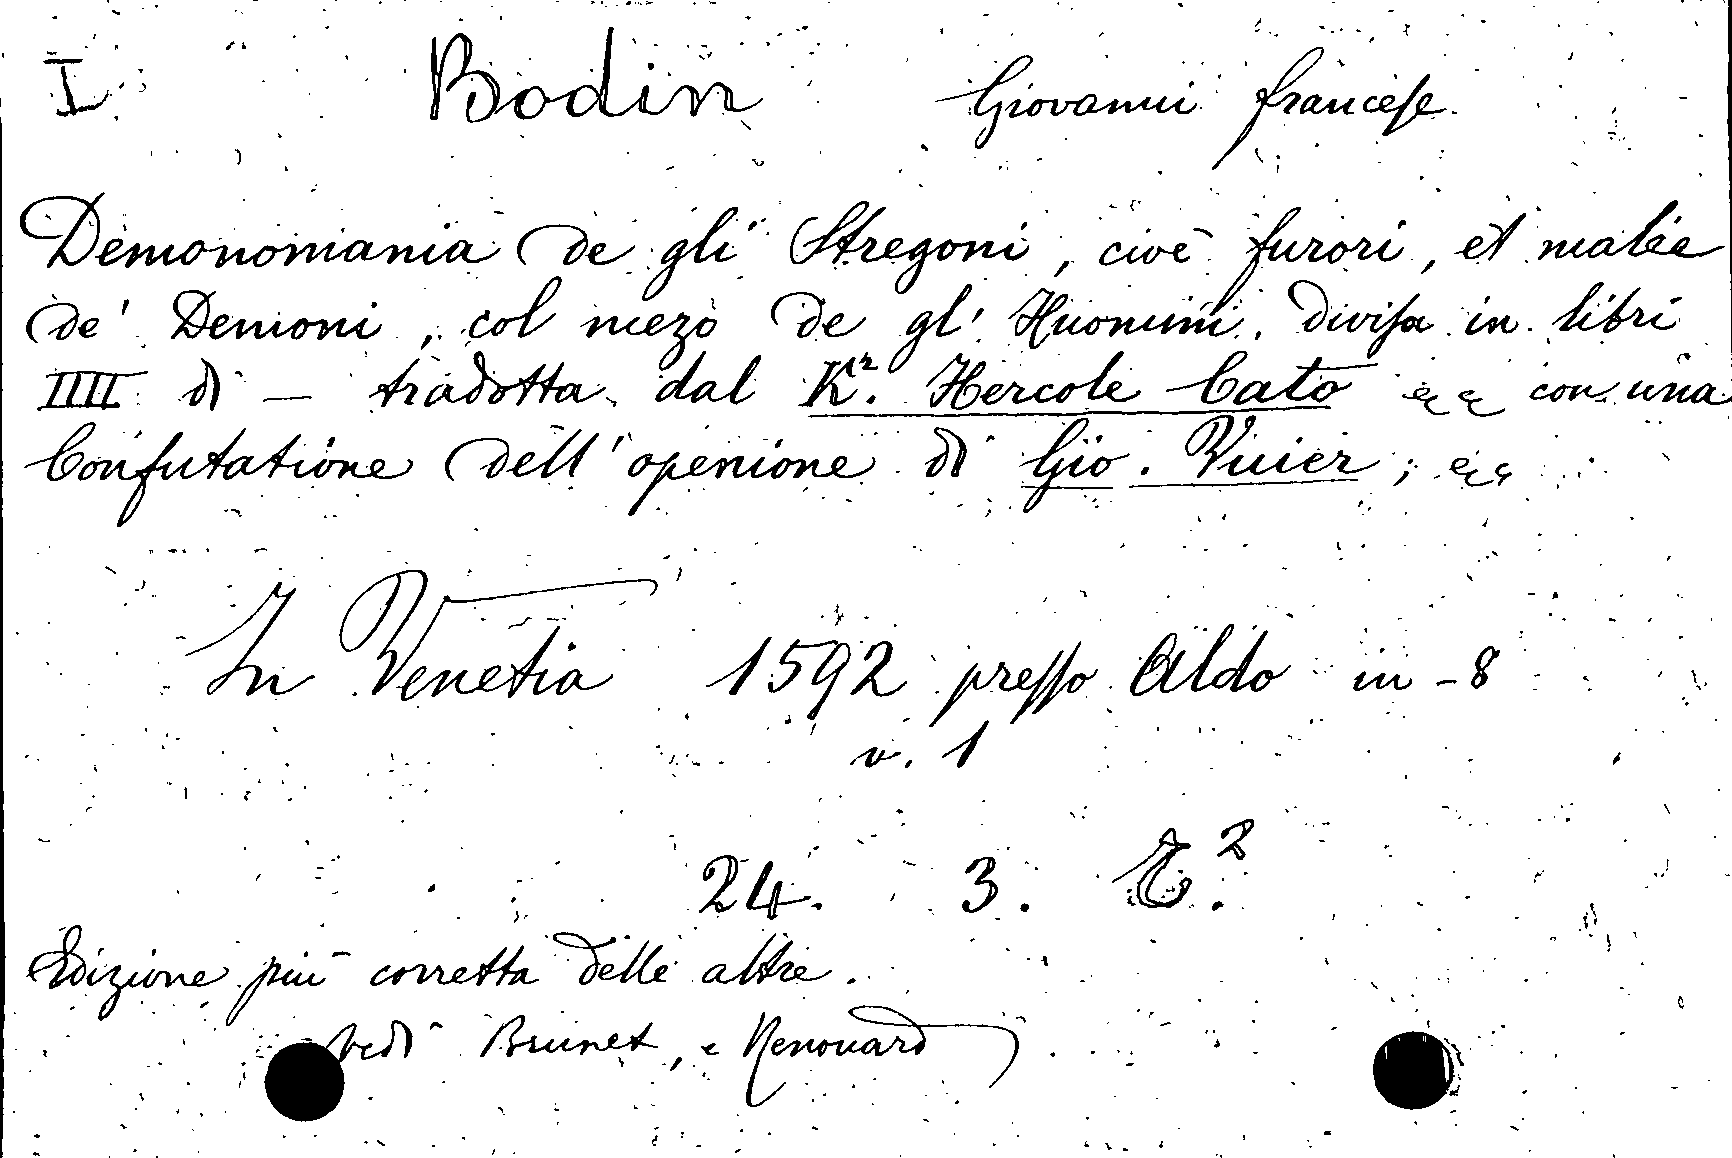 I Bodin Giovanni francese
Demonomania de gli Stregoni, cioè furori, et malie
de' Demoni, col mezo de gl' Huomini. Divisa in libri
IIII di — tradotta dal K.r Hercole Cato con una
Confutatione dell'openione di Gio. Vuier;
In Venetia 1592 presso Aldo in-8
v. 1
24. 3. 2
Edizione più corretta delle altre.
Vedi Brunet, e Renouard